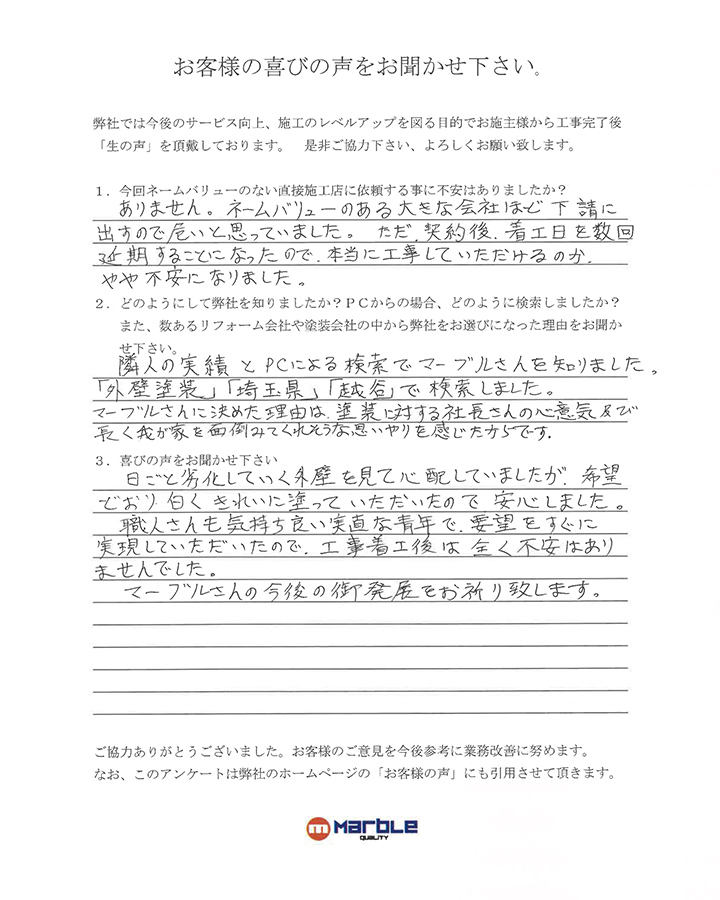 お客様の喜びの声をお聞かせ下さい。
弊社では今後のサービス向上、施工のレベルアップを図る目的でお施主様から工事完了後
「生の声」を頂戴しております。　是非ご協力下さい、よろしくお願い致します。
１．今回ネームバリューのない直接施工店に依頼する事に不安はありましたか？
ありません。ネームバリューのある大きな会社ほど下請に
出すので危いと思っていました。ただ、契約後、着工日を数回
延期することになったので、本当に工事していただけるのか、
やや不安になりました。
２．どのようにして弊社を知りましたか？ＰＣからの場合、どのように検索しましたか？
また、数あるリフォーム会社や塗装会社の中から弊社をお選びになった理由をお聞か
せ下さい。
隣人の実績とPCによる検索でマーブルさんを知りました。
「外壁塗装」「埼玉県」「越谷」で検索しました。
マーブルさんに決めた理由は、塗装に対する社長さんの心意気及び
長く我が家を面倒みてくれそうな思いやりを感じたからです。
３．喜びの声をお聞かせ下さい
日ごと劣化していく外壁を見て心配していましたが、希望
どおり白くきれいに塗っていただいたので安心しました。
職人さんも気持ち良い実直な青年で、要望をすぐに
実現していただいたので、工事着工後は全く不安はあり
ませんでした。
マーブルさんの今後の御発展をお祈り致します。
ご協力ありがとうございました。お客様のご意見を今後参考に業務改善に努めます。
なお、このアンケートは弊社のホームページの「お客様の声」にも引用させて頂きます。
m MARBLE
QUALITY